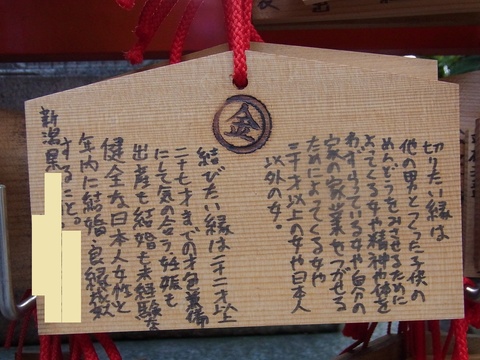 金
切りたい縁は
他の男とつくった子供の
めんどうをみさせるために
よってくる女や精神や体を
わずらっている女や自分の
家の家業をつがせる
ためによってくる女や
二十才以上の女や日本人
以外の女。
結びたい縁は二十二才以上
二十七才までの才色兼備
にして気の合う妊娠も
出産も結婚も未経験な
健全な日本人女性と
年内に結婚良縁成就
すること。
新潟県